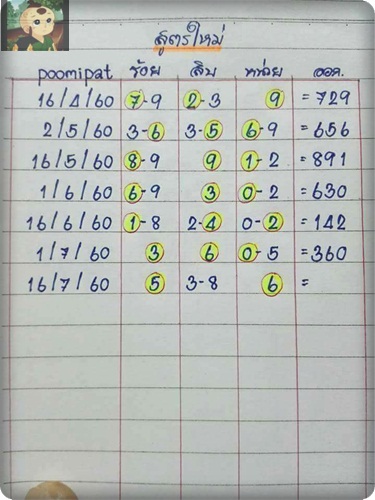 สูตรใหม่
poomipat ร้อย สิบ หน่วย ออก.
16/4/60 7-9 2-3 9 =729
2/5/60 3-6 3-5 6-9 =656
16/5/60 8-9 9 1-2 =891
1/6/60 6-9 3 0-2 =630
16/6/60 1-8 2-4 0-2 =142
1/7/60 3 6 0-5 =360
16/7/60 5 3-8 6 =